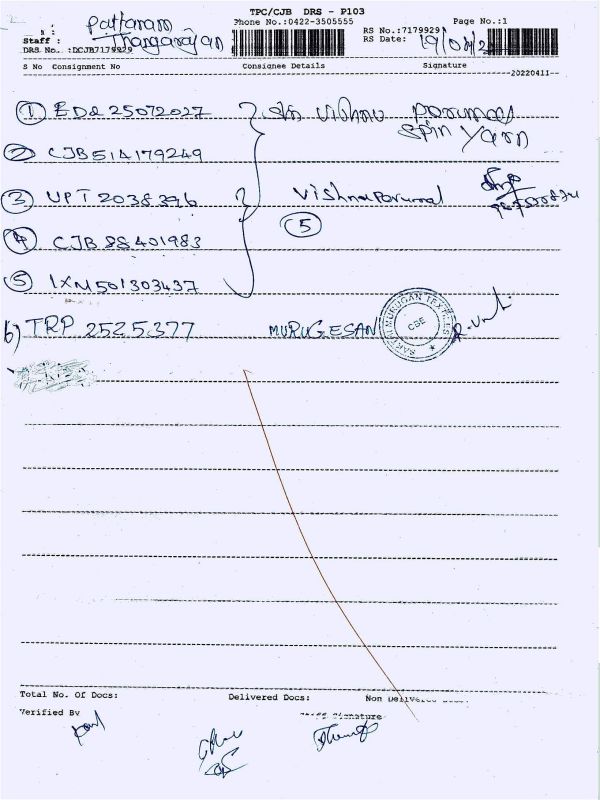 TPC/CJB DRS - P103
Phone No.:0422-3505555
Page No.:1
Pattanam
Staff : Thangarajan
DRS No. :DCJB7179929
RS No.:7179929
RS Date: 19/04/2
S No Consignment No Consignee Details Signature
20220411
① EDQ 25072027
spin yarn
② CJB514179249
③ UPT 2038396 Vishnu Perumal
④ CJB 88401983 ⑤
⑤ IXM501303437
6) TRP 2525377 MURUGESAN
MURUGAN TEXTILES
CBE
Total No. Of Docs: Delivered Docs: Non Delivered
Verified By Signature